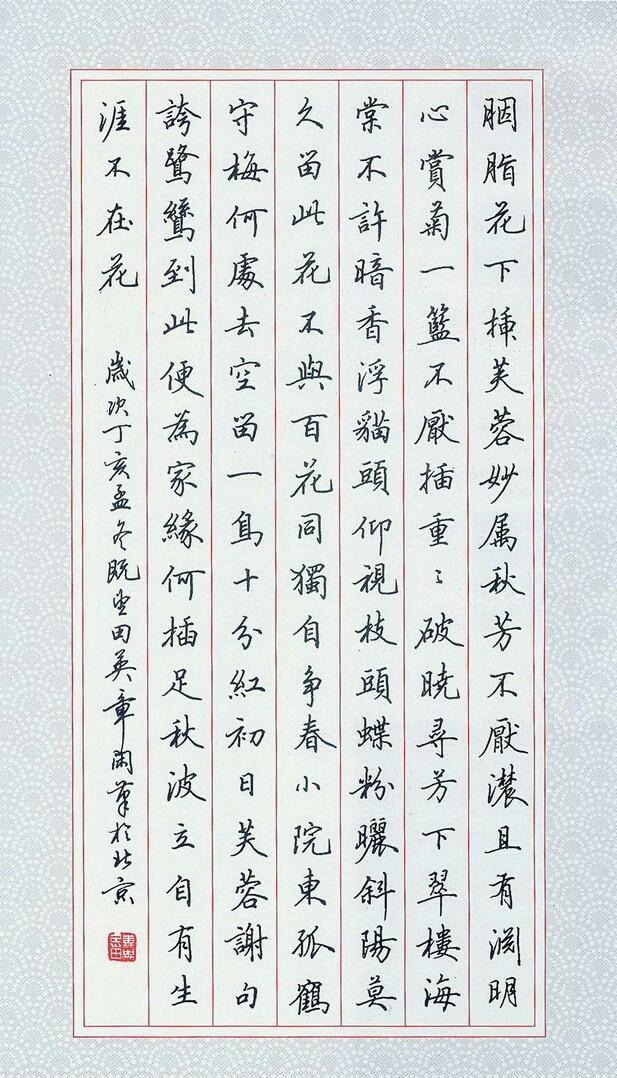 胭脂花下插芙蓉妙属秋芳不厭濃且有淵明
心賞菊一籃不厭插重〻破曉尋芳下翠樓海
棠不許暗香浮貓頭仰視枝頭蝶粉曬斜陽莫
久留此花不與百花同獨自爭春小院東孤鶴
守梅何處去空留一鳥十分紅初日芙蓉謝句
誇鷺鷥到此便為家緣何插足秋波立自有生
涯不在花
歲次丁亥孟冬既望田英章閑筆於北京